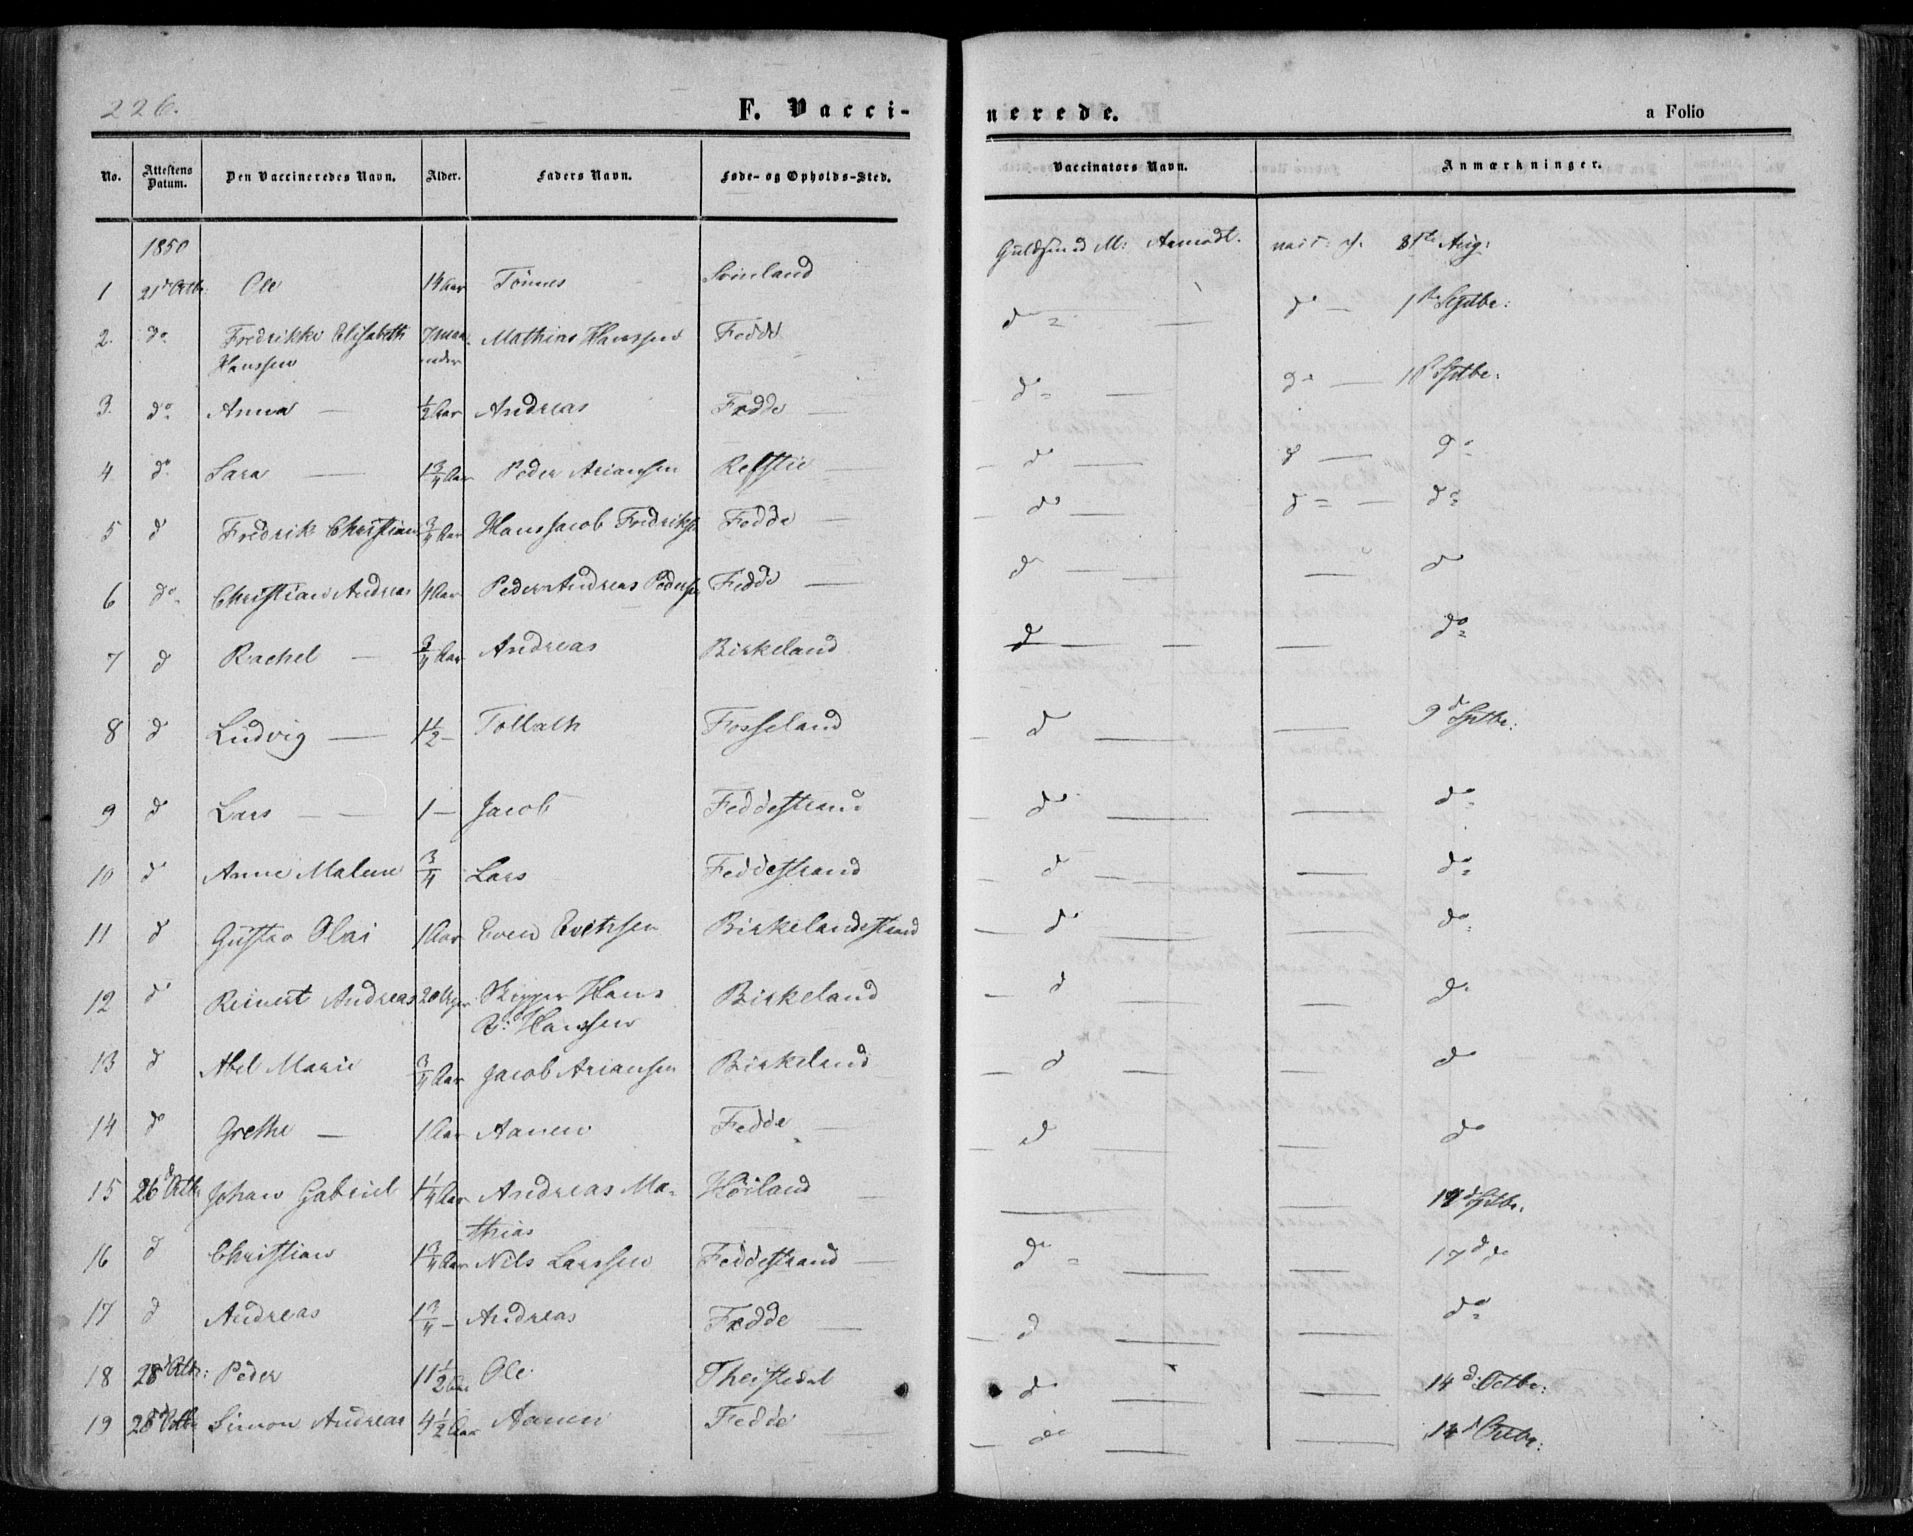 226.
F. Vacci-
nerede.
a Folio
No.
Attestens Datum.
Den Vaccineredes Navn.
Alder.
Faders Navn.
Føde- og Opholds-Sted.
Vaccinators Navn.
Anmærkninger.
1850
1 21d Octb: Ole Aar Tønnes Svinland M: vacc: d. 31te Aug:
2. do Fredrikke Elisabeth 7 maa- Mathias Hanssen Fedde do do 1ste Septbr:
Hanssen neder
3. do Anna — 1/2 Aar Andreas Fedde — do — do — Septbr:
4 do Sara — 1 3/4 Aar Peder Ariansen Refstie — do — d — do
5 d Fredrik Christian 3/4 Aar Hans Jacob Fredriks Fedde — do — do — do
6 do Christian Andreas 4 Aar Peder Andreas Peders Fedde — do — — do
7 d Rachel — 3/4 Aar Andreas Birkeland d — — — do
8 d Ludvig — 1 1/2 — Tollak Fosseland d — — 9d Septbr:
9 d Lars — — 1 — Jacob Feddestrand do — — do
10 d Anne Malene 3/4 Lars Feddestrand d — — do
11 d Gustav Olai 1 Aar Even Evensen Birkelandstrand do — — do
12 d Reinert Andreas 20 Uger Skipper Hans Birkeland d — — do
Hanssen
13 d Abel Marie 3/4 Aar Jacob Ariansen Birkeland d — — do
14 d Grethe — 1 Aar Aanen Fedde — d — — do
15 26d Octb Johan Gabriel 1 1/4 Aar Andreas Ma- Høiland — — — Septbr.
thias
16 d Christian 1 3/4 Aar Nils Larssen Feddestrand — do — — 17d do
17 d Andreas 1 3/4 — Andreas Fedde — d — — do
18 28d Octb: Peder 11 1/2 Aar Ole Theistedal do — — 14d Octbr:
19 28d Octb Simon Andreas 4 1/2 Aar Aanen Fedde — do — — 14d Octbr: